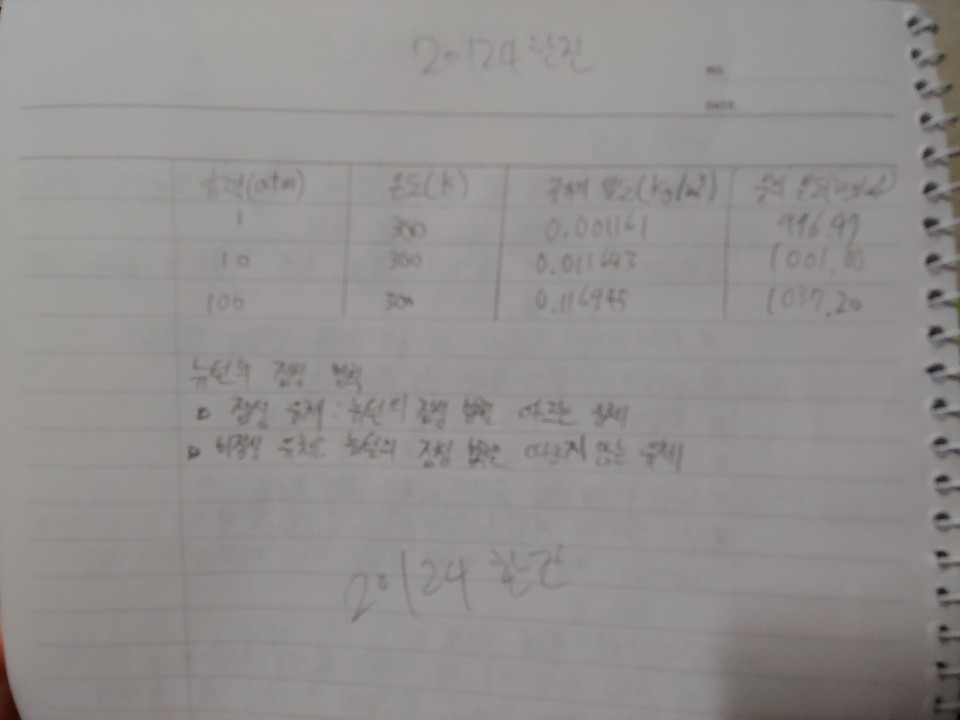 20124 한진
NO.
DATE
압력(atm) 온도(K) 공기의 밀도(kg/m³) 물의 밀도(kg/m³)
1 300 0.001161 996.97
10 300 0.011643
100 300 0.116945 1037.20
뉴턴의 점성 법칙
▷ 점성 유체 : 뉴턴의 점성 법칙을 따르는 유체
▷ 비점성 유체: 뉴턴의 점성 법칙을 따르지 않는 유체
20124 한진